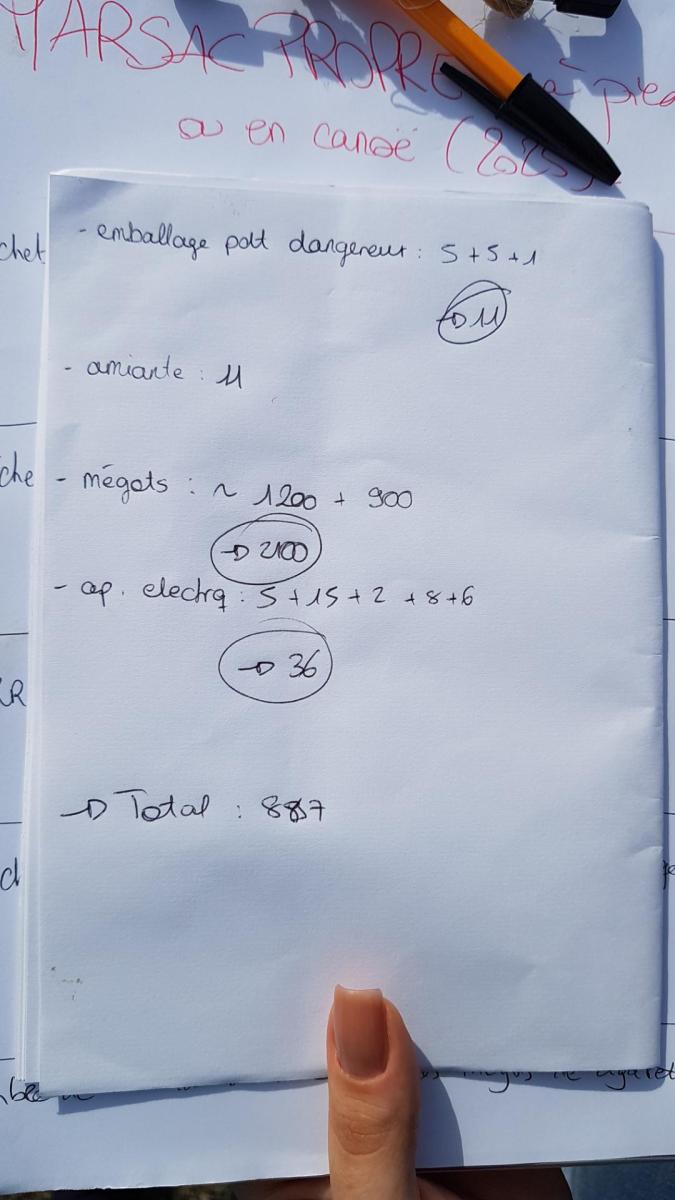 MARSAC PROPRE à pied
ou en canoë (2025)
chet
- emballage pdt dangereux : 5 + 5 + 1
→ 11
- amiante : 11
che
- mégots : ~ 1200 + 900
→ 2100
- ap. electrq : 5 + 15 + 2 + 8 + 6
→ 36
→ Total : 887